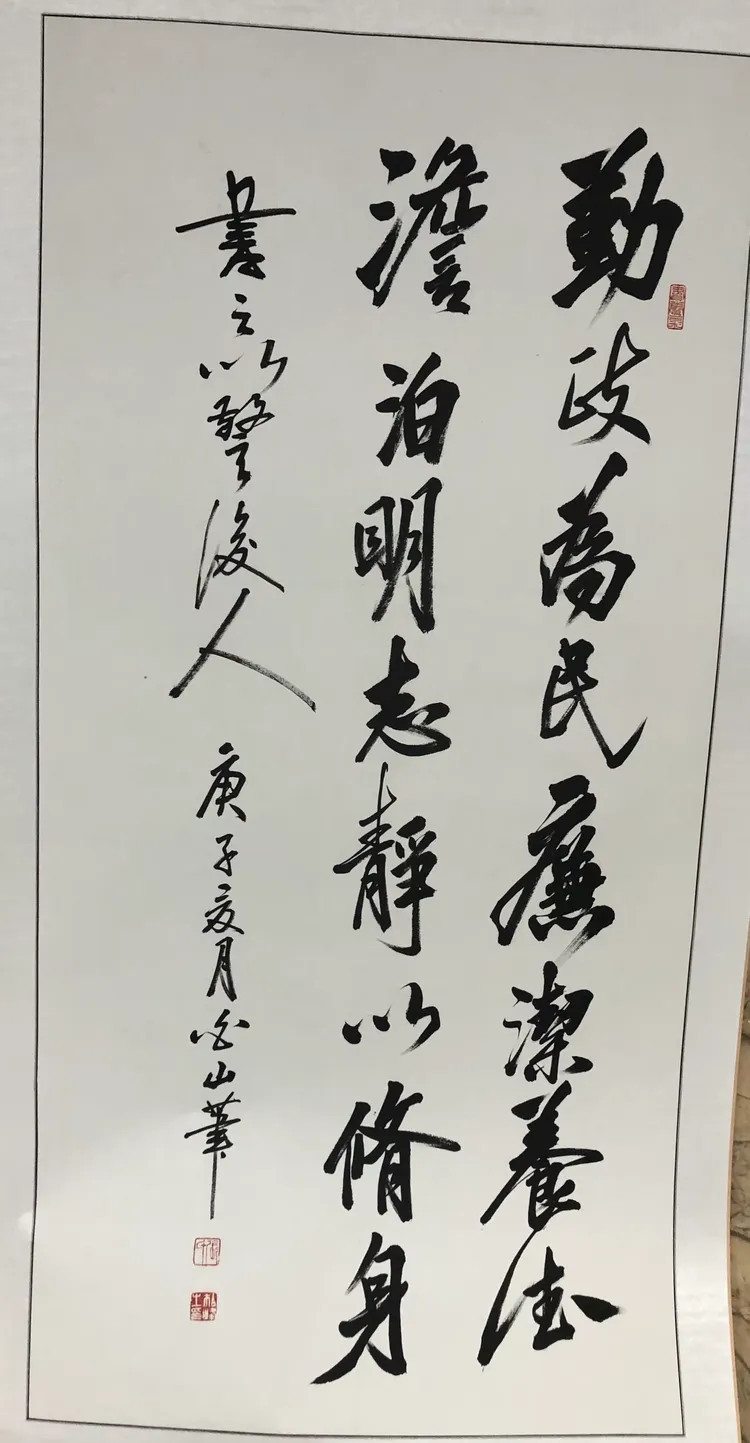 勤政為民廉潔養德
澹泊明志靜以脩身
書之以警後人
庚子夏月 山筆